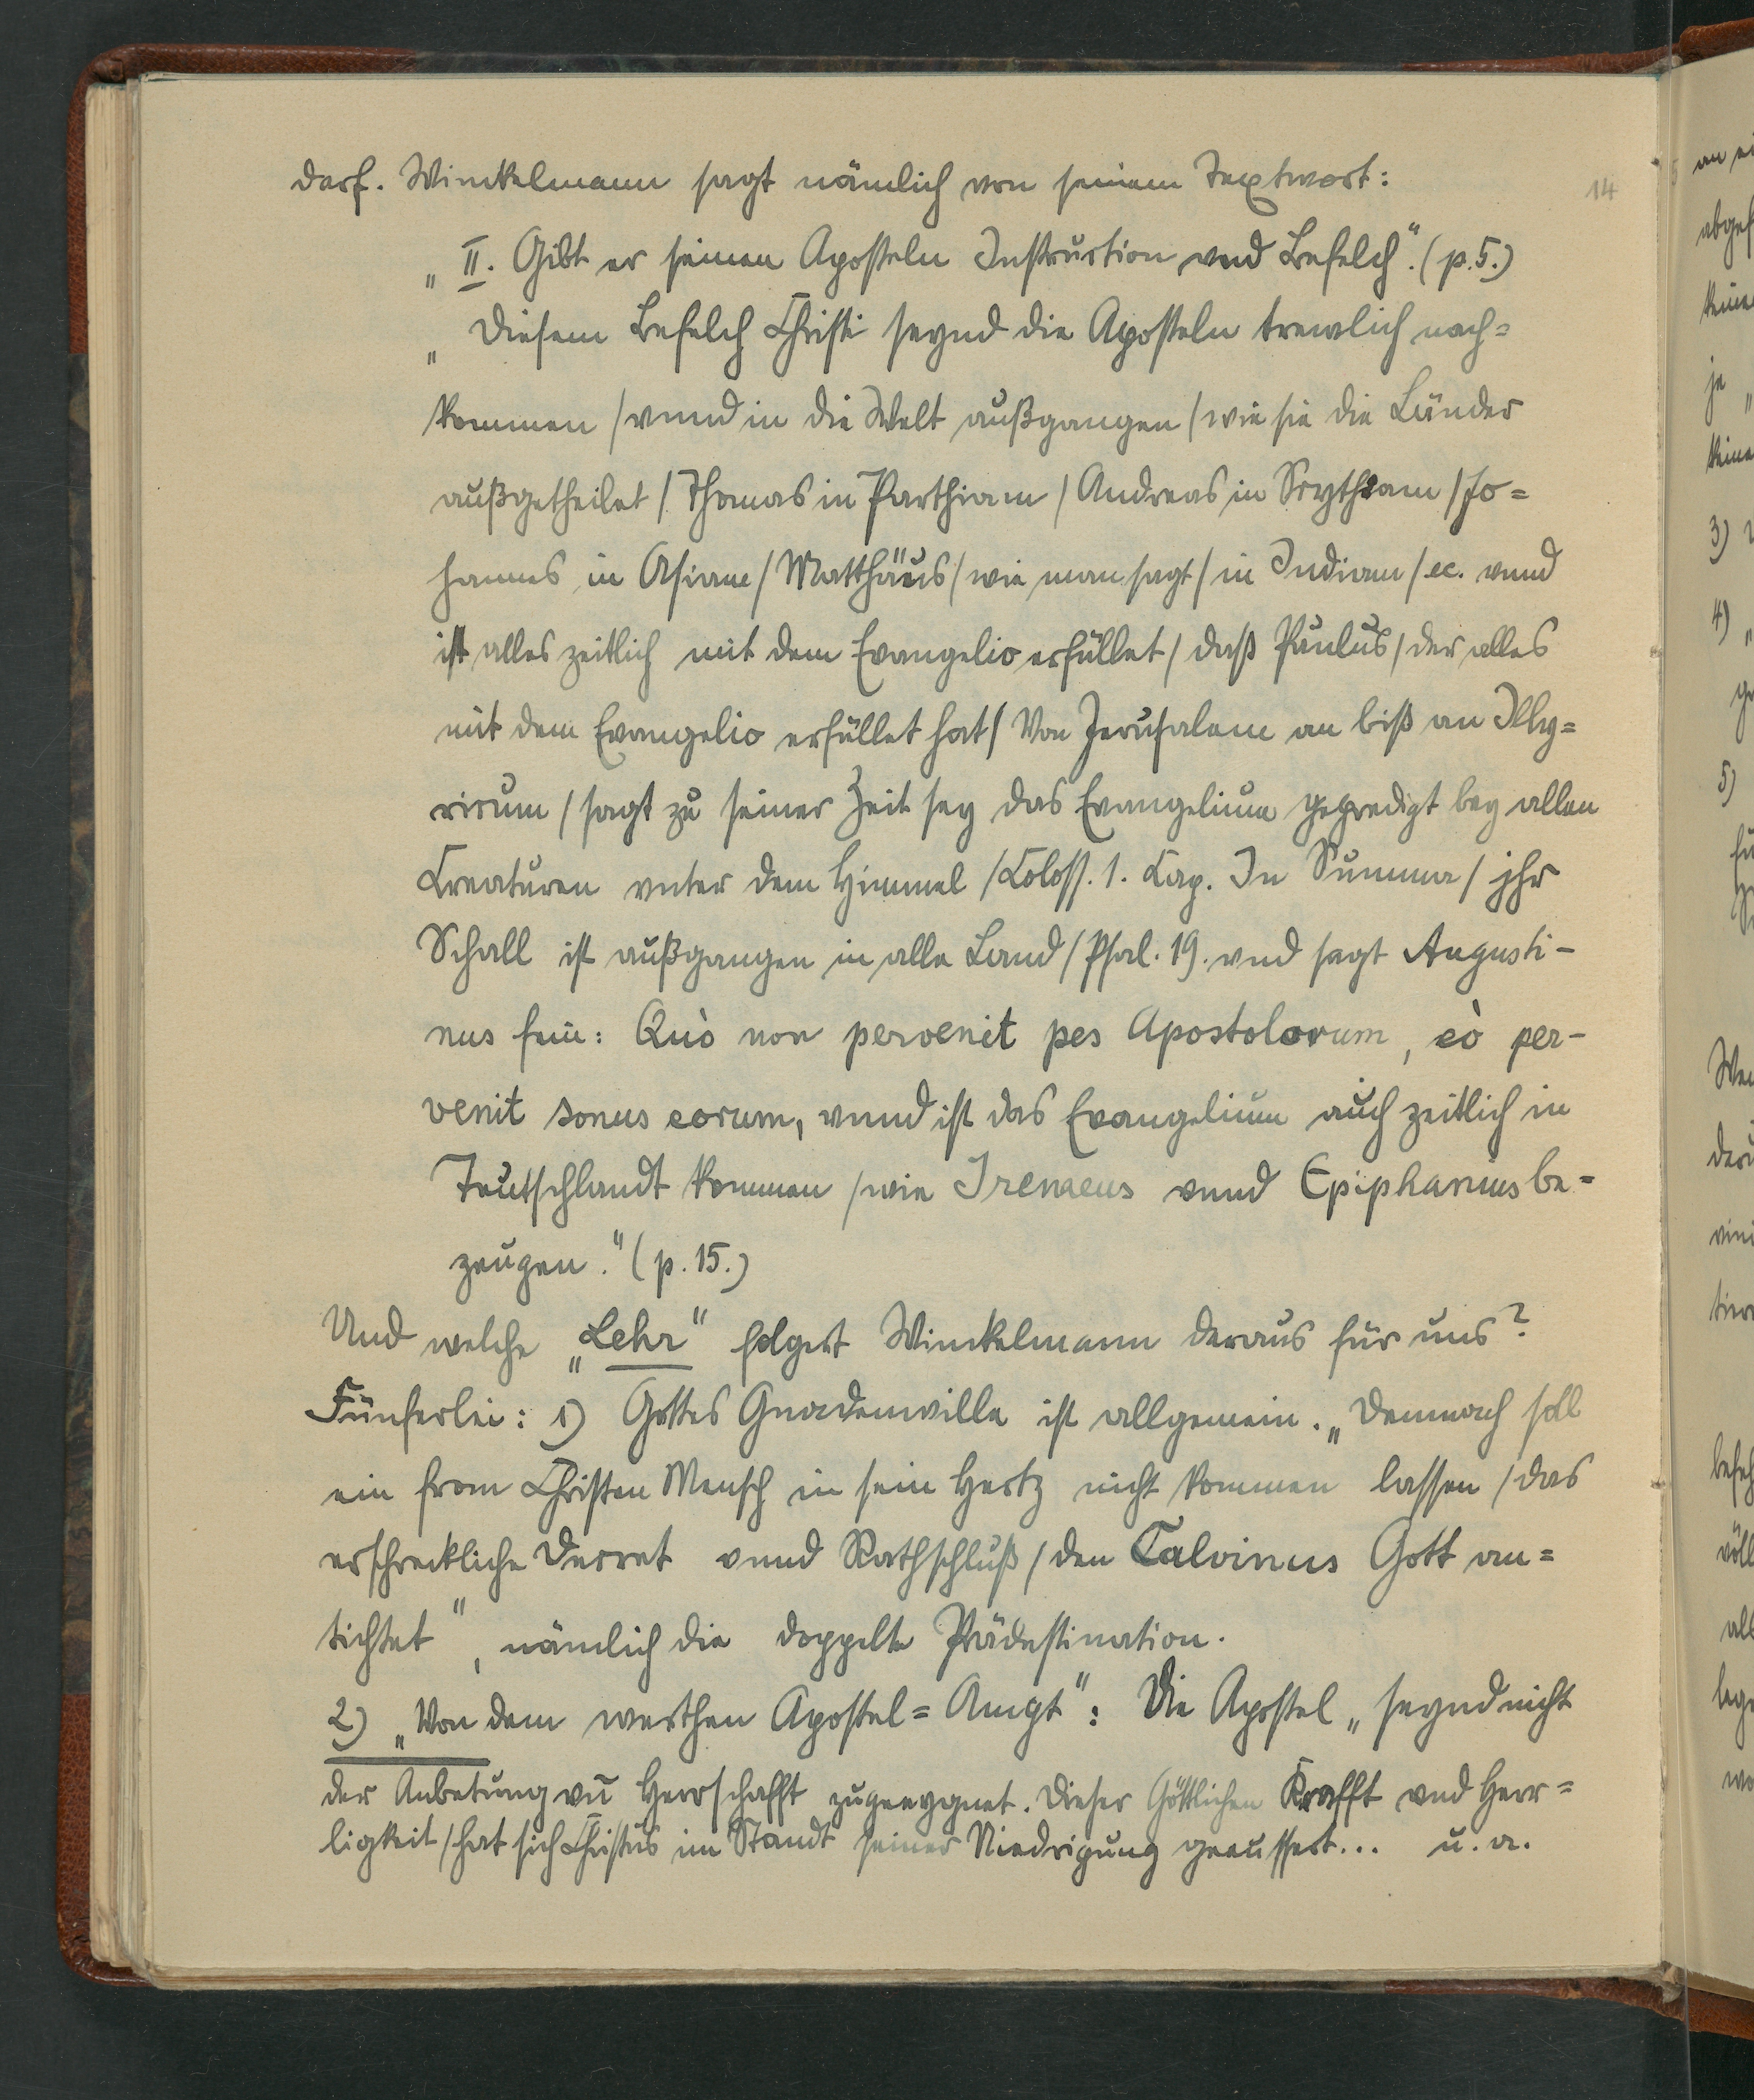 darf. Winckelmann sagt nämlich von seinem Textwort:
14
„II. Gibt er seinen Aposteln Instruction vnd Befelch“. (p. 5.)
„Diesem Befelch Christi seynd die Aposteln trewlich nach=
kommen / vnnd in die Welt außgangen / wie sie die Länder
außgetheilet / Thomas in Parthiam / Andreas in Scythiam / Jo=
hannes in Asiam / Matthäus / wie man sagt / in Indiam / ec. vnnd
ist alles zeitlich mit dem Evangelio erfüllet / daß Paulus / der alles
mit dem Evangelio erfüllet hat / Von Jerusalem an biß an Illy=
ricum / sagt zu seiner Zeit sey das Evangelium gepredigt bey allen
Creaturen vnter dem Himmel / Coloss. 1. Cap. In Summa / jhr
Schall ist außgangen in alle Land / Psal. 19. vnd sagt Augusti-
nus fein: Quò non pervenit pes Apostolorum, eò per-
venit sonus eorum, vnnd ist das Evangelium auch zeitlich in
Teutschlandt kommen / wie Irenaeus vnnd Epiphanius be=
zeugen.“ (p. 15.)
Und welche „Lehr“ folgert Winckelmann daraus für uns?
Fünferlei: 1) Gottes Gnadenwille ist allgemein. „Demnach soll
ein from Christen Mensch in sein Hertz nicht kommen lassen / das
erschreckliche Decret vnnd Rathschluß / den Calvinus Gott an=
tichtet“, nämlich die doppelte Prädestination.
2) „Von dem werthen Apostel=Ampt“: Die Apostel „seynd nicht
der Anbetung vn̄ Herrschafft zugeeygnet. Dieser Göttlichen Krafft vnd Herr=
ligkeit / hat sich Christus im Standt seiner Niedrigung geeussert... u. a.